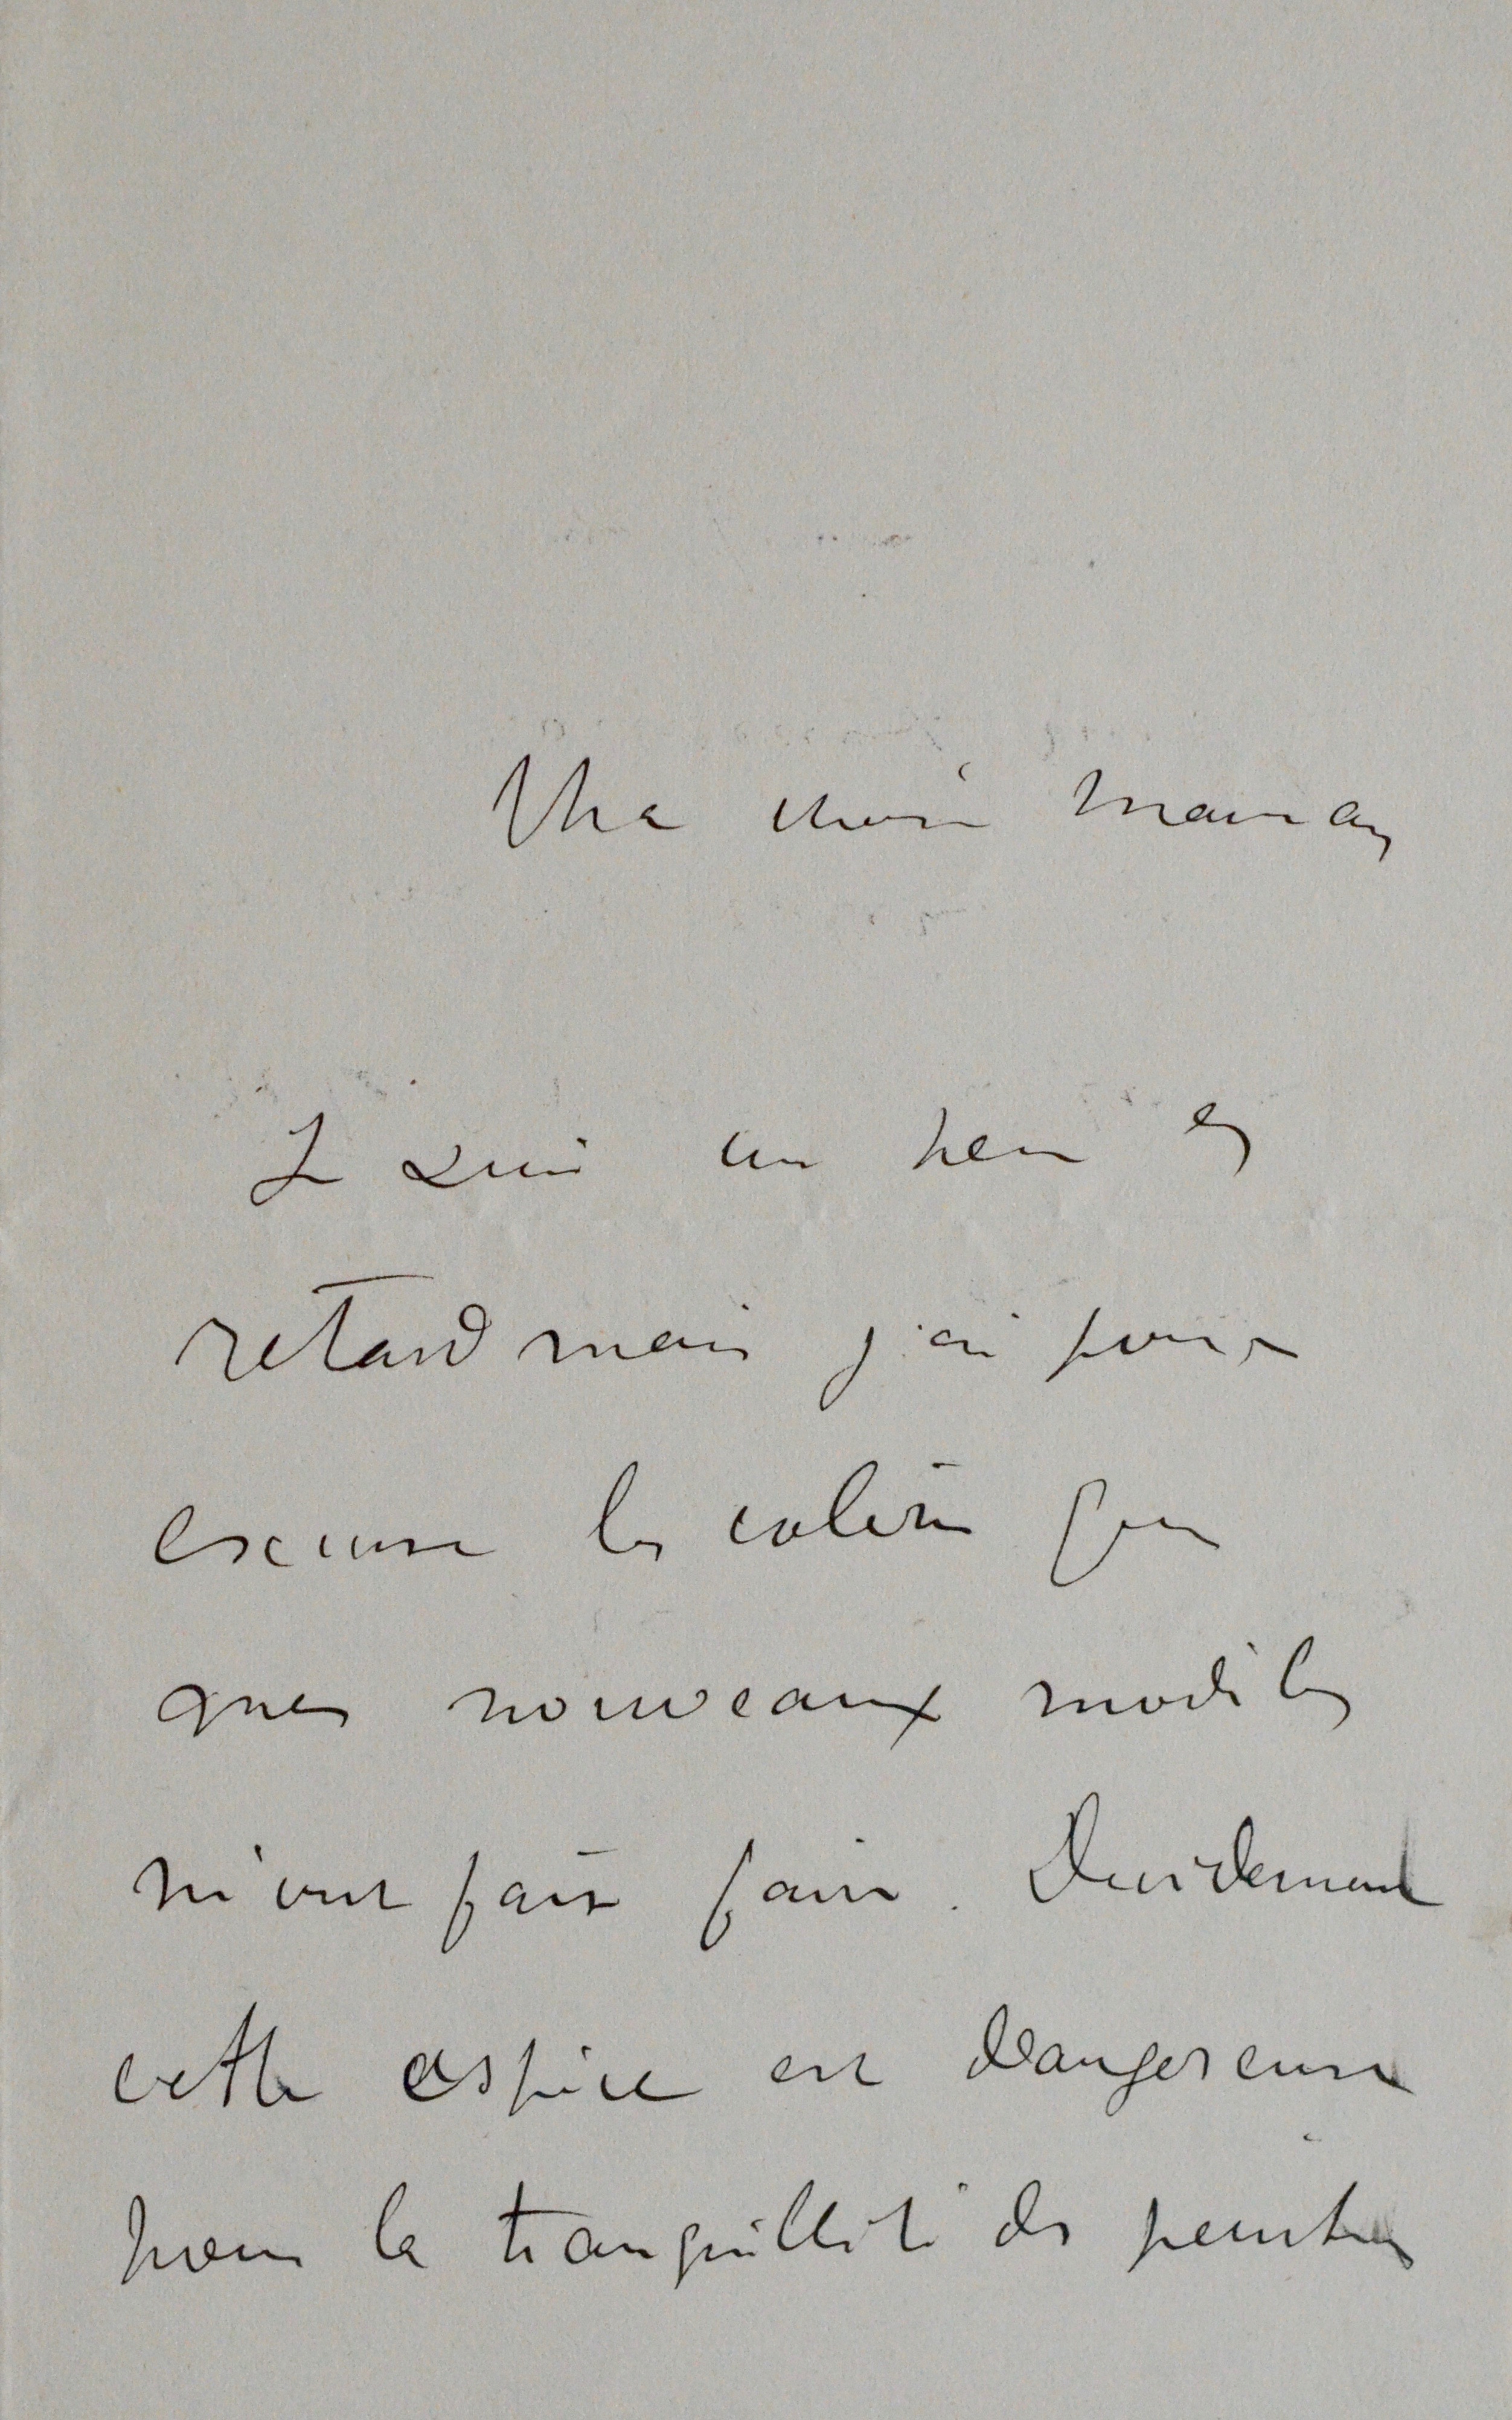 Ma chère Maman
Je suis un peu en
retard mais j'ai pour
excuse les colères que
mes nouveaux modèles
m'ont fait faire. Decidement
cette espèce est dangereuse
pour la tranquillité des peintres